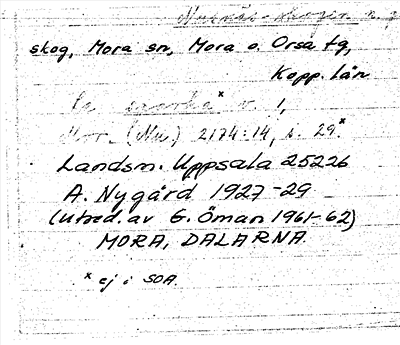 skog, Mora sn, Mora o. Orsa tg,
Kopp. län
(Mu.) 2174:14, s. 29.x
Landsm. Uppsala 25226
A. Nygård 1927-29
(utred. av E. Öman 1961-62)
MORA, DALARNA.
x ej i SOA.